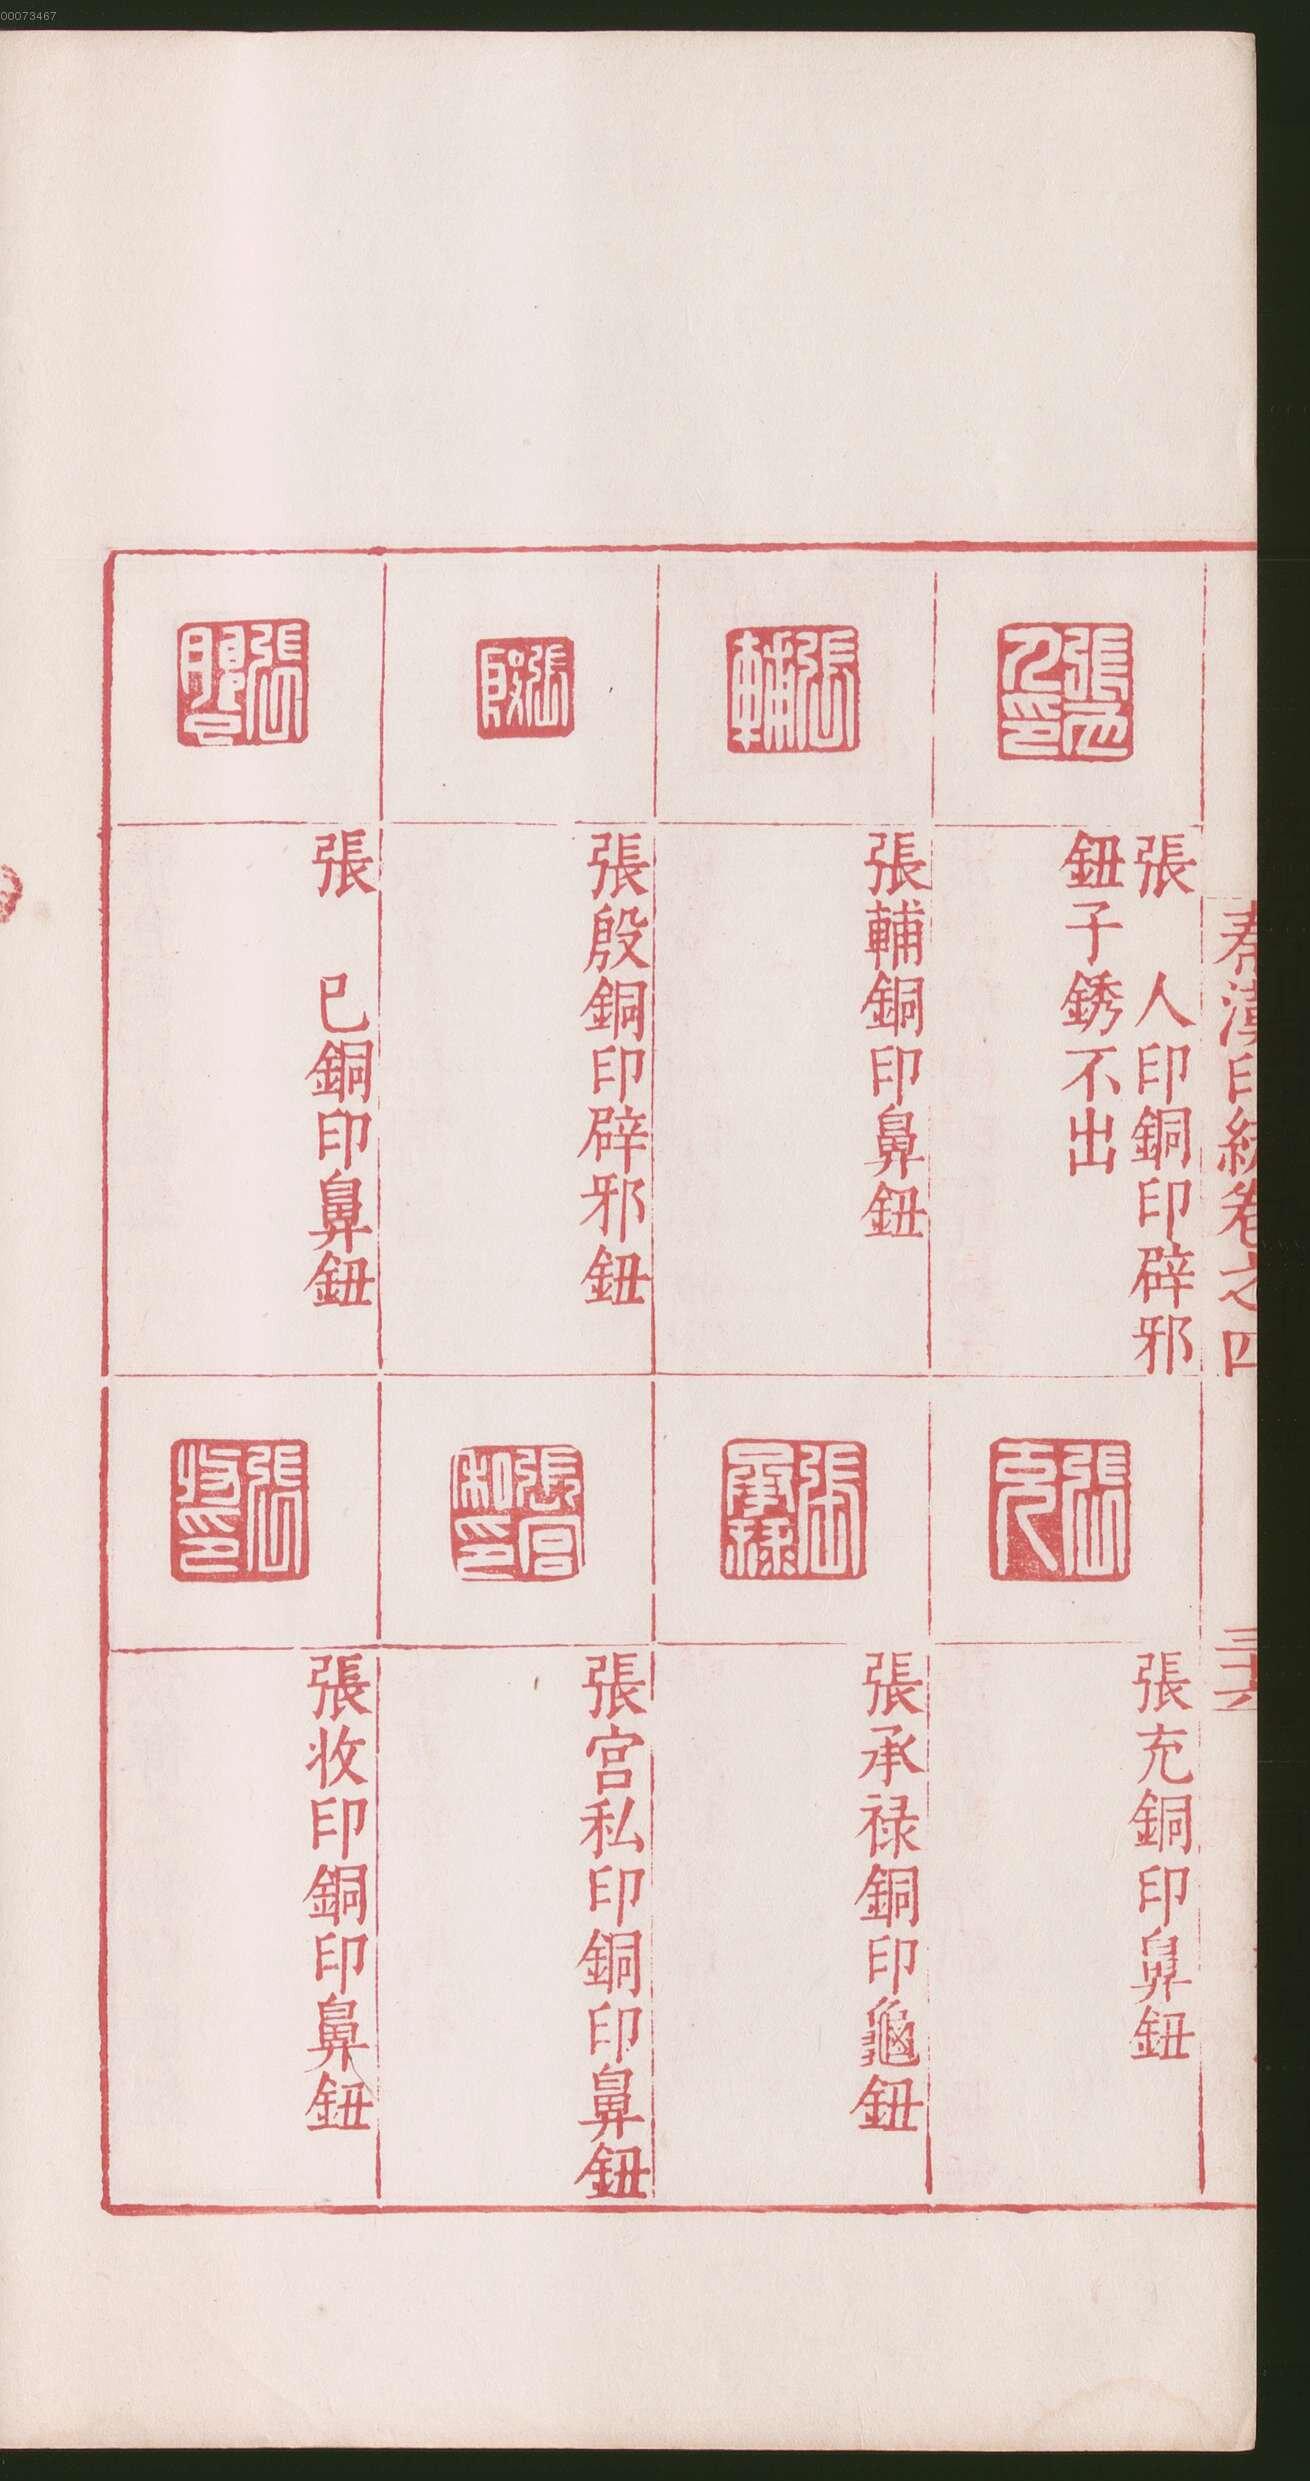 00073467
秦漢印統卷之四
三十六
張　人印銅印辟邪
鈕子銹不出
張輔銅印鼻鈕
張殷銅印辟邪鈕
張　巳銅印鼻鈕
張充銅印鼻鈕
張承禄銅印龜鈕
張宫私印銅印鼻鈕
張收印銅印鼻鈕